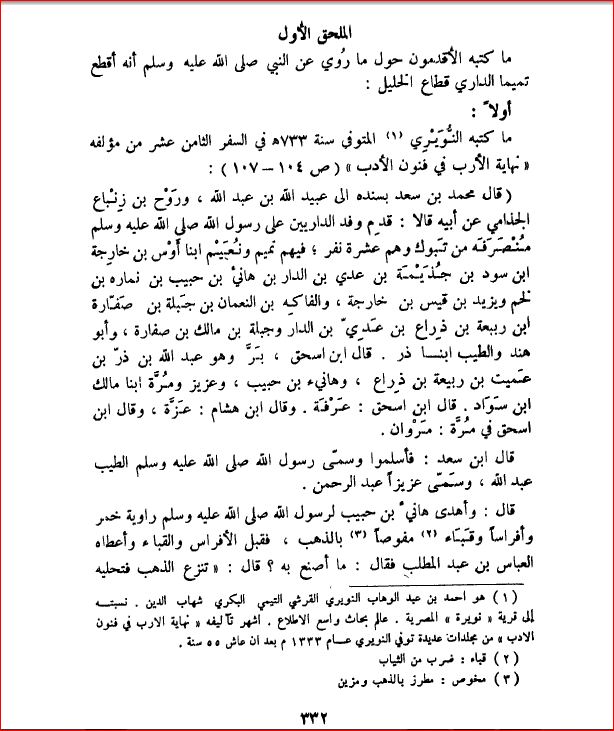 الملحق الأول
ما كتبه الأقدمون حول ما رُوي عن النبي صلى الله عليه وسلم أنه أقطع
تميما الداري قطاع الخليل :
أولاً :
ما كتبه النُّوَيْري (١) المتوفي سنة ٧٣٣ھ في السفر الثامن عشر من مؤلفه
« نهاية الأرب في فنون الأدب » ( ص ١٠٤ – ١٠٧ ) :
( قال محمد بن سعد بسنده الى عبيد الله بن عبد الله ، ورَوْح بن زِنْباع
الجذامي عن أبيه قالا : قدم وفد الداريين على رسول الله صلى الله عليه وسلم
مُنْصَرَفَه من تبوك وهم عشرة نفر ؛ فيهم تميم ونُعَيْم ابنا أوْس بن خارجة
ابن سود بن جُذَيْمَة بن عدي بن الدار بن هانئ بن حبيب بن نماره بن
لخم ويزيد بن قيس بن خارجة ، والفاكه بن النعمان بن جَبلة بن صَفّارة
ابن ربيعة بن ذِراع بن عَديّ بن الدار وجبلة بن مالك بن صفارة ، وأبو
هند والطيب ابنا ذر . قال ابن اسحق ، بَرّ وهو عبد الله بن ذرّ بن
عميت بن ربيعة بن ذِراع ، وهانيء بن حبيب ، وعزيز ومُرَّة ابنا مالك
ابن سَوَاد . قال ابن اسحق : عَرْفة . وقال ابن هشام : عَزَّة ، وقال ابن
اسحق في مُرَّة : مَرْوان .
قال ابن سعد : فأسلموا وسمّى رسول الله صلى الله عليه وسلم الطيب
عبد الله ، وسَمّى عزيزاً عبد الرحمن .
قال : وأهدى هانئ بن حبيب لرسول الله صلى الله عليه وسلم راوية خمر
وأفراساً وقَبَاء (٢) مفوصاً (٣) بالذهب ، فقبل الأفراس والقباء وأعطاه
العباس بن عبد المطلب فقال : ما أصنع به ؟ قال : « تنزع الذهب فتحليه
(١) هو احمد بن عبد الوهاب النويري القرشي التيمي البكري شهاب الدين . نسبته
إلى قرية « نويرة » المصرية . عالم بحاث واسع الاطلاع . اشهر تآليفه « نهاية الارب في فنون
الادب » من مجلدات عديدة توفي النويري عام ١٣٣٣ م بعد ان عاش ٥٥ سنة .
(٢) قباء : ضرب من الثياب
(٣) مخوص : مطرز بالذهب ومزين
٣٣٢